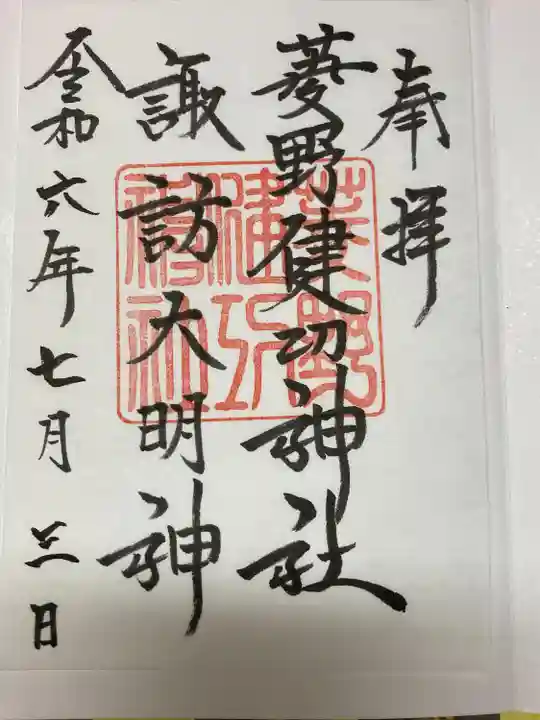 奉拝
菱野健功神社
諏訪大明神
令和六年七月三日
菱野
健功
神社